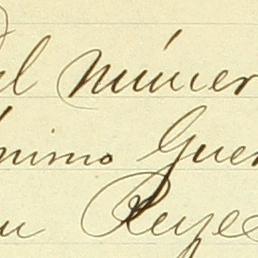 el númer
ónimo Guer
Reyes